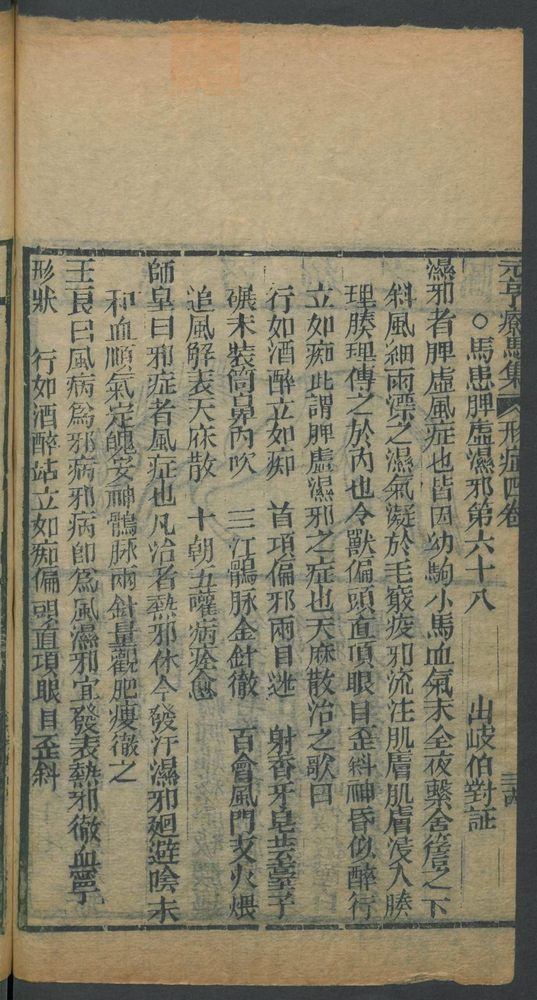 元亨療馬集 形症四卷
○馬患脾虛濕邪第六十八 出岐伯對証
濕邪者脾虛風症也皆因幼駒小馬血氣未全夜繫舍簷之下
斜風細雨漂之濕氣凝於毛竅疫邪流注肌膚肌膚浸入腠
理腠理傳之於內也令獸偏頭直項眼目歪斜神昏似醉行
立如痴此謂脾虛濕邪之症也天麻散治之歌曰
行如酒醉立如痴 首項偏邪兩目迷 射香牙皂共葶子
碾末裝筒鼻內吹 三江鶻脉金針徹 百會風門艾火煨
追風解表天麻散 十朝五嚾病痊愈
師皇曰邪症者風症也凡治者熱邪休令發汗濕邪廻避喰未
和血順氣定魄安神鶻脉兩針量觀肥痩徹之
王良曰風病爲邪病邪病即爲風濕邪宜發表熱邪徹血寧
形狀 行如酒醉站立如痴偏頭直項眼目歪斜